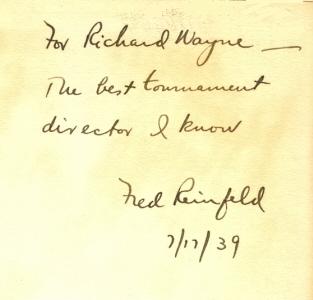 For Richard Wayne —
The best tournament
director I know
Fred Reinfeld
7/17/39